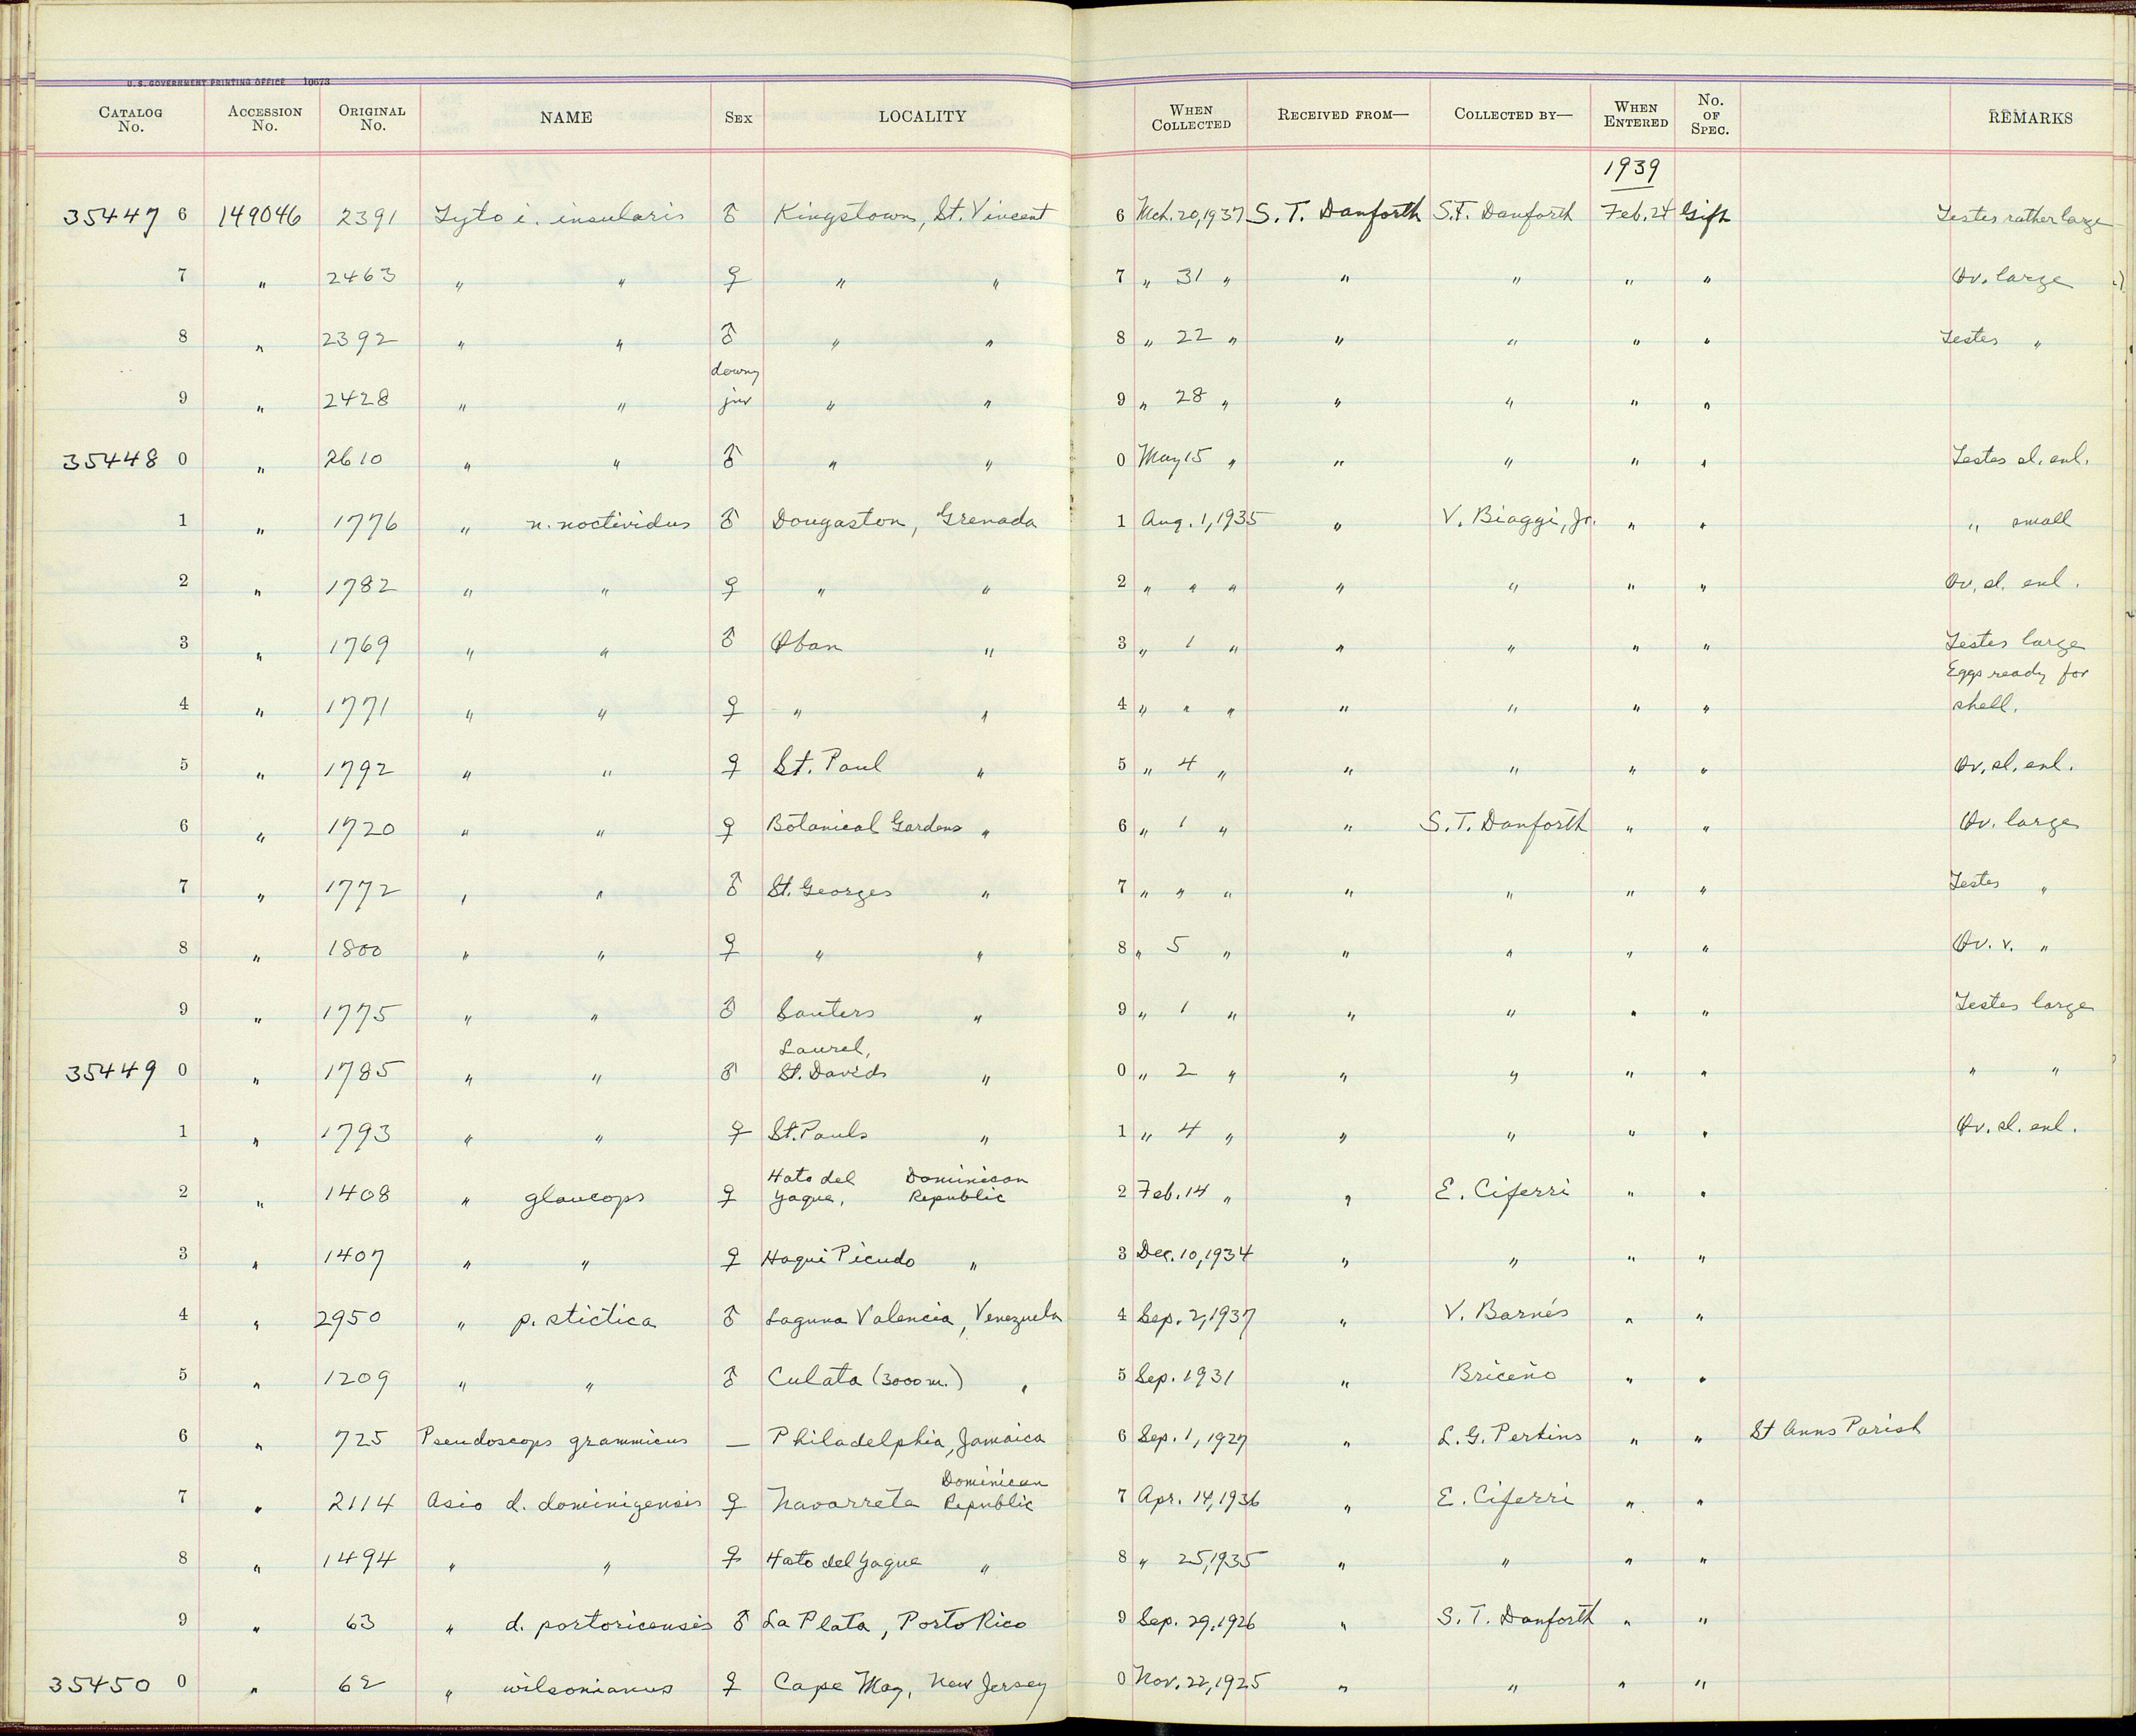 U.S. GOVERNMENT PRINTING OFFICE 10673
CATALOG No. ACCESSION No. ORIGINAL No. NAME SEX LOCALITY WHEN COLLECTED RECEIVED FROM— COLLECTED BY— WHEN ENTERED No. OF SPEC. REMARKS
1939
35447 6 149046 2391 Tyto i. insularis ♂ Kingstown, St. Vincent 6 Mch. 20, 1937 S. T. Danforth S.T. Danforth Feb. 24 Gift Testes rather large
7 " 2463 " " ♀ " " 7 " 31 " " " " " Ov. large
8 " 2392 " " ♂ " " 8 " 22 " " " " " Testes "
9 " 2428 " " downy juv " " 9 " 28 " " " " "
35448 0 " 2610 " " ♂ " " 0 May 15 " " " " " Testes sl. enl.
1 " 1776 " n. noctividus ♂ Dougaston, Grenada 1 Aug. 1, 1935 " V. Biaggi, Jr. " " " small
2 " 1782 " " ♀ " " 2 " " " " " " " Ov. sl. enl.
3 " 1769 " " ♂ Oban " 3 " 1 " " " " " Testes large
4 " 1771 " " ♀ " " 4 " " " " " " " Eggs ready for shell.
5 " 1792 " " ♀ St. Paul " 5 " 4 " " " " " Ov. sl. enl.
6 " 1720 " " ♀ Botanical Gardens " 6 " 1 " " S.T. Danforth " " Ov. large
7 " 1772 " " ♂ St. Georges " 7 " " " " " " " Testes "
8 " 1800 " " ♀ " " 8 " 5 " " " " " Ov. v. "
9 " 1775 " " ♂ Sauters " 9 " 1 " " " " " Testes large
35449 0 " 1785 " " ♂ Laurel, St. Davids " 0 " 2 " " " " " " "
1 " 1793 " " ♀ St. Pauls " 1 " 4 " " " " " Ov. sl. enl.
2 " 1408 " glaucops ♀ Hato del Yaque, Dominican Republic 2 Feb. 14 " " E. Ciferri " "
3 " 1407 " " ♀ Haqui Picudo " 3 Dec. 10, 1934 " " " "
4 " 2950 " p. stictica ♂ Laguna Valencia, Venezuela 4 Sep. 2, 1937 " V. Barnés " "
5 " 1209 " " ♂ Culata (3000 m.) " 5 Sep. 1931 " Briceño " "
6 " 725 Pseudoscops grammicus — Philadelphia, Jamaica 6 Sep. 1, 1927 " L. G. Perkins " " St Anns Parish
7 " 2114 Asio d. dominigensis ♀ Navarrete Dominican Republic 7 Apr. 14, 1936 " E. Ciferri " "
8 " 1494 " " ♀ Hato del Yaque " 8 " 25, 1935 " " " "
9 " 63 " d. portoricensis ♂ La Plata, Porto Rico 9 Sep. 29, 1926 " S. T. Danforth " "
35450 0 " 62 " wilsonianus ♀ Cape May, New Jersey 0 Nov. 22, 1925 " " " "